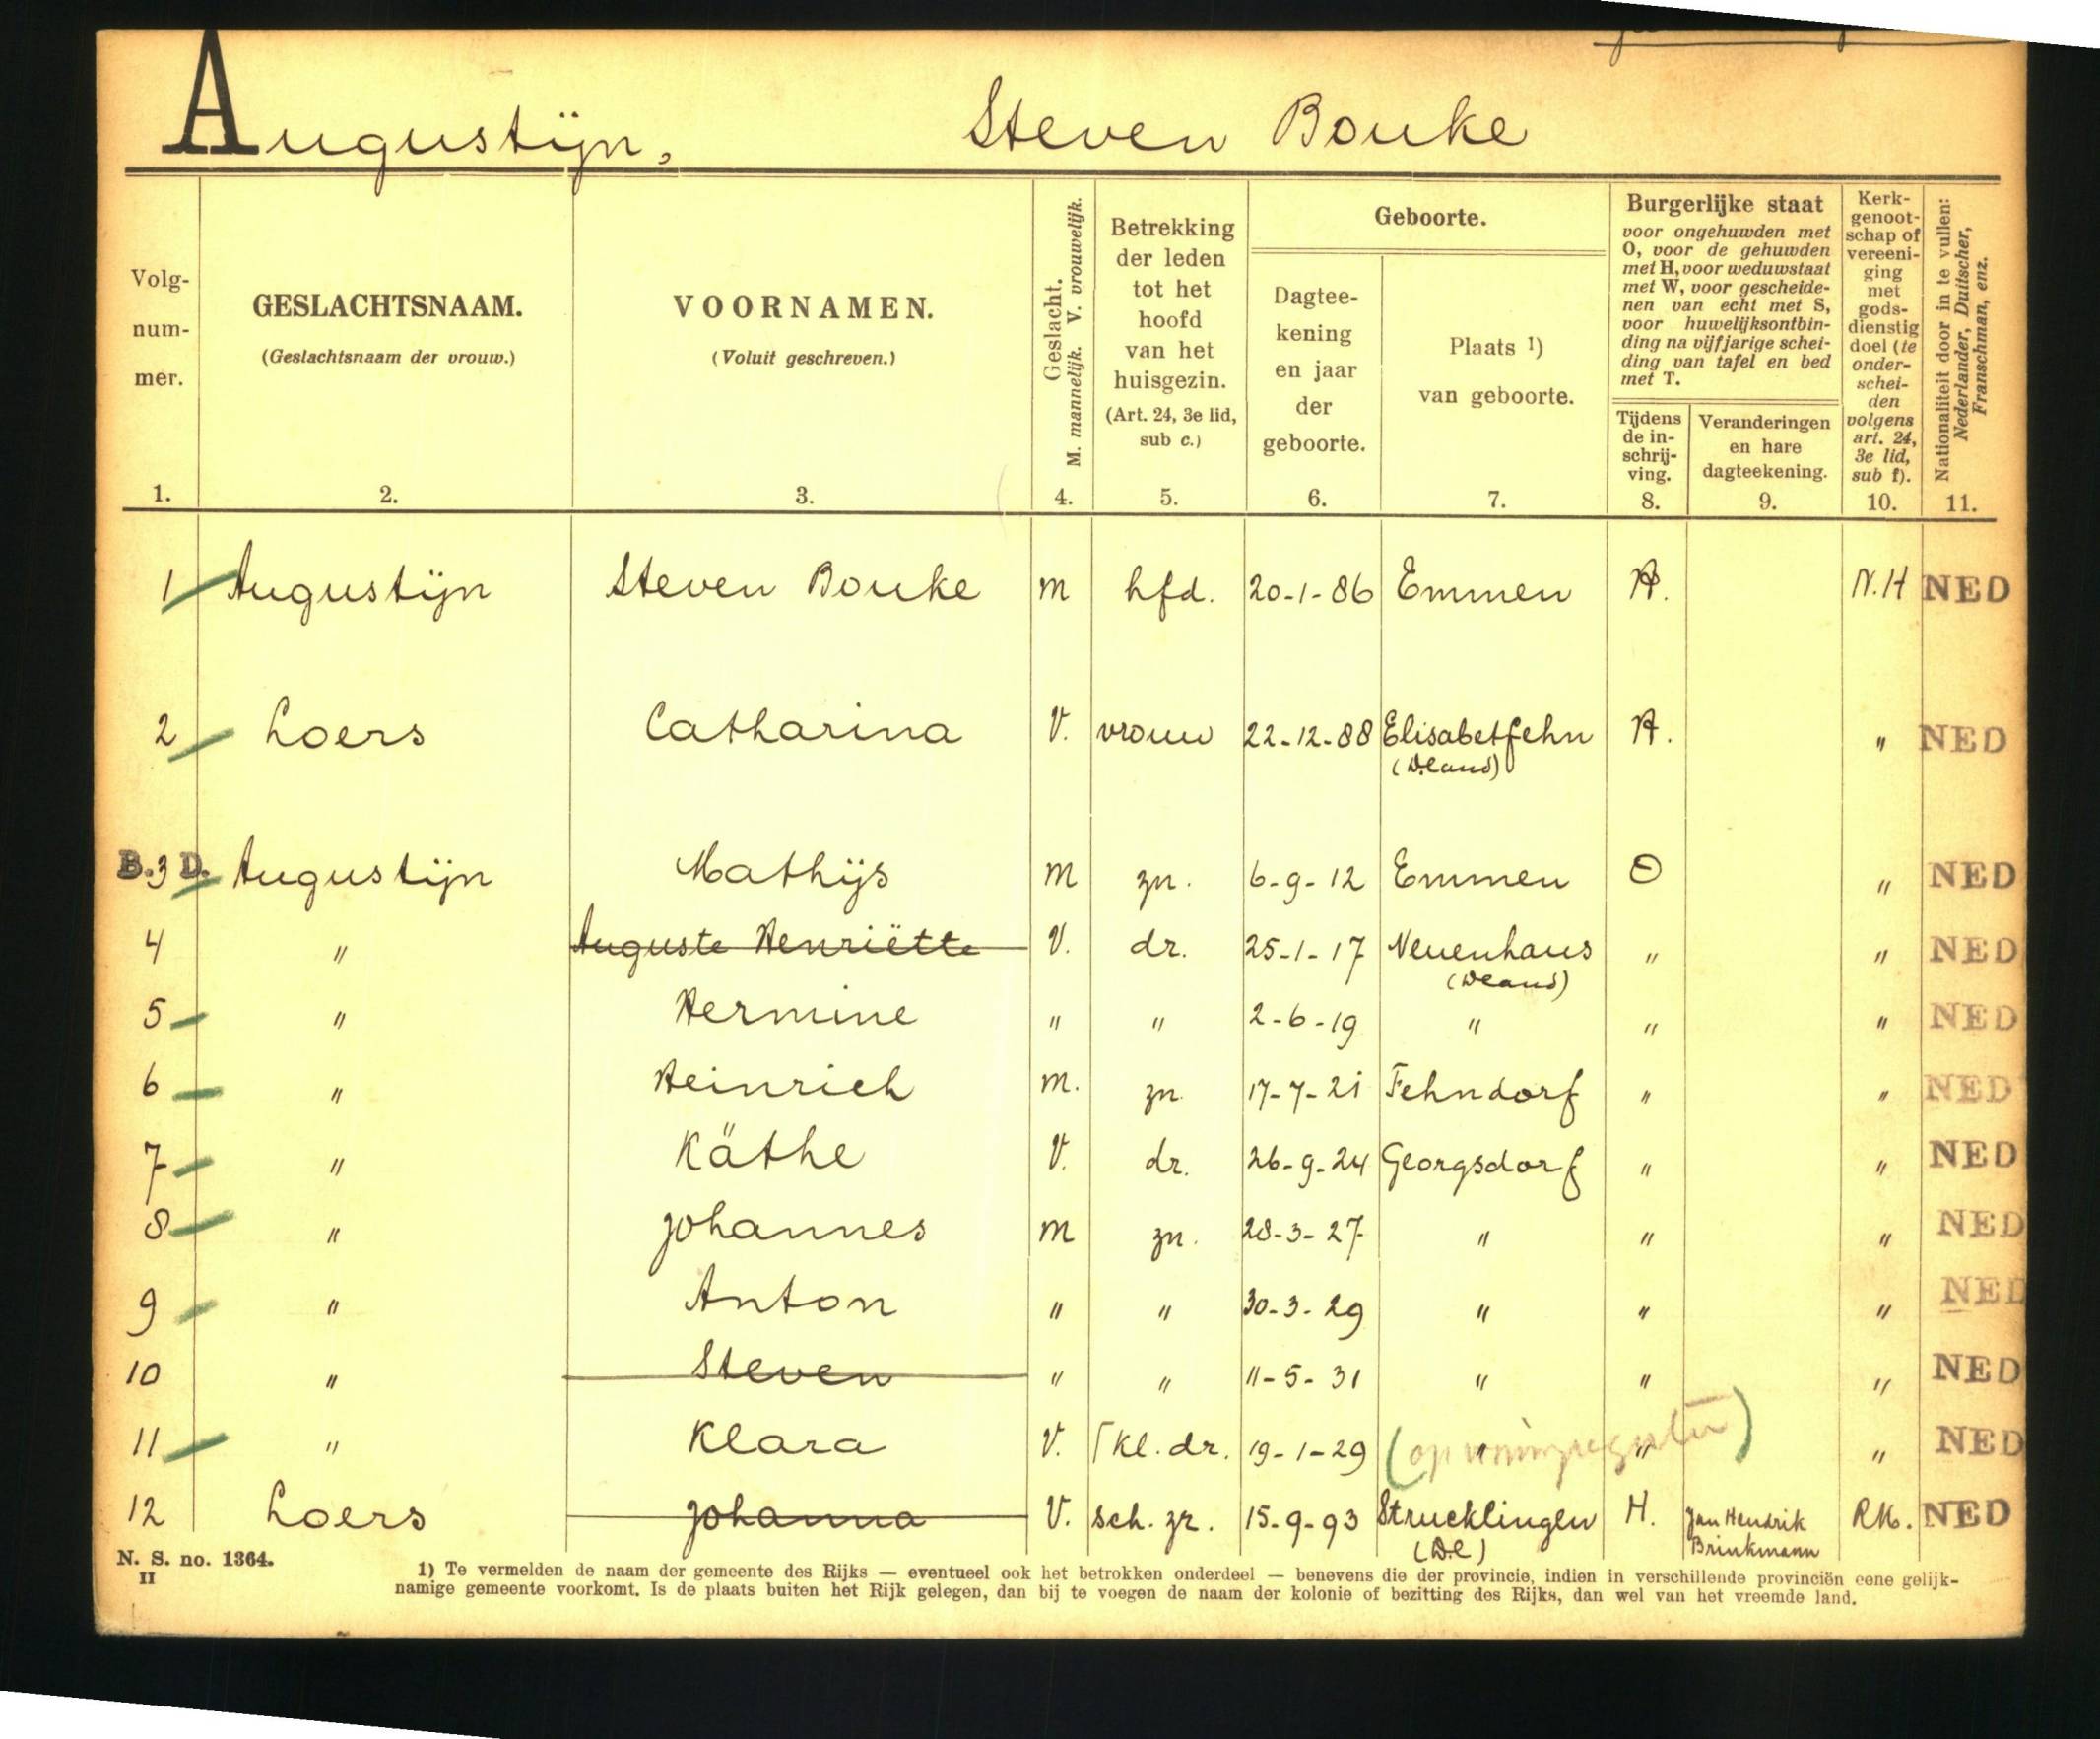 Augustijn, Steven Bouke
Volg-
num-
mer.
1.
GESLACHTSNAAM.
(Geslachtsnaam der vrouw.)
2.
VOORNAMEN.
(Voluit geschreven.)
3.
Geslacht.
M. mannelijk. V. vrouwelijk.
4.
Betrekking
der leden
tot het
hoofd
van het
huisgezin.
(Art. 24, 3e lid,
sub c.)
5.
Geboorte.
Dagtee-
kening
en jaar
der
geboorte.
6.
Plaats 1)
van geboorte.
7.
Burgerlijke staat
voor ongehuwden met
O, voor de gehuwden
met H, voor weduwstaat
met W, voor gescheide-
nen van echt met S,
voor huwelijksontbin-
ding na vijfjarige schei-
ding van tafel en bed
met T.
Tijdens
de in-
schrij-
ving.
8.
Veranderingen
en hare
dagteekening.
9.
Kerk-
genoot-
schap of
vereeni-
ging
met
gods-
dienstig
doel (te
onder-
schei-
den
volgens
art. 24,
3e lid,
sub f).
10.
Nationaliteit door in te vullen:
Nederlander, Duitscher,
Franschman, enz.
11.
1 Augustijn Steven Bouke m hfd. 20-1-86 Emmen H. N.H NED
2 Loers Catharina V. vrouw 22-12-88 Elisabetfehn H. " NED
(Dland)
B. 3 D. Augustijn Mathijs m zn. 6-9-12 Emmen O " NED
4 " Auguste Henriëtte V. dr. 25-1-17 Neuenhaus " " NED
(Dland)
5 " Hermine " " 2-6-19 " " " NED
6 " Heinrich m. zn. 17-7-21 Fehndorf " " NED
7 " Käthe V. dr. 26-9-24 Georgsdorf " " NED
8 " Johannes m zn. 28-3-27 " " " NED
9 " Anton " " 30-3-29 " " " NED
10 " Steven " " 11-5-31 " " " NED
11 " Klara V. kl. dr. 19-1-29 " " " NED
12 Loers Johanna V. sch. zr. 15-9-93 Strucklingen H. Jan Hendrik RK. NED
(D.l) Brinkmann
N. S. no. 1364.
II
1) Te vermelden de naam der gemeente des Rijks — eventueel ook het betrokken onderdeel — benevens die der provincie, indien in verschillende provinciën eene gelijk-
namige gemeente voorkomt. Is de plaats buiten het Rijk gelegen, dan bij te voegen de naam der kolonie of bezitting des Rijks, dan wel van het vreemde land.